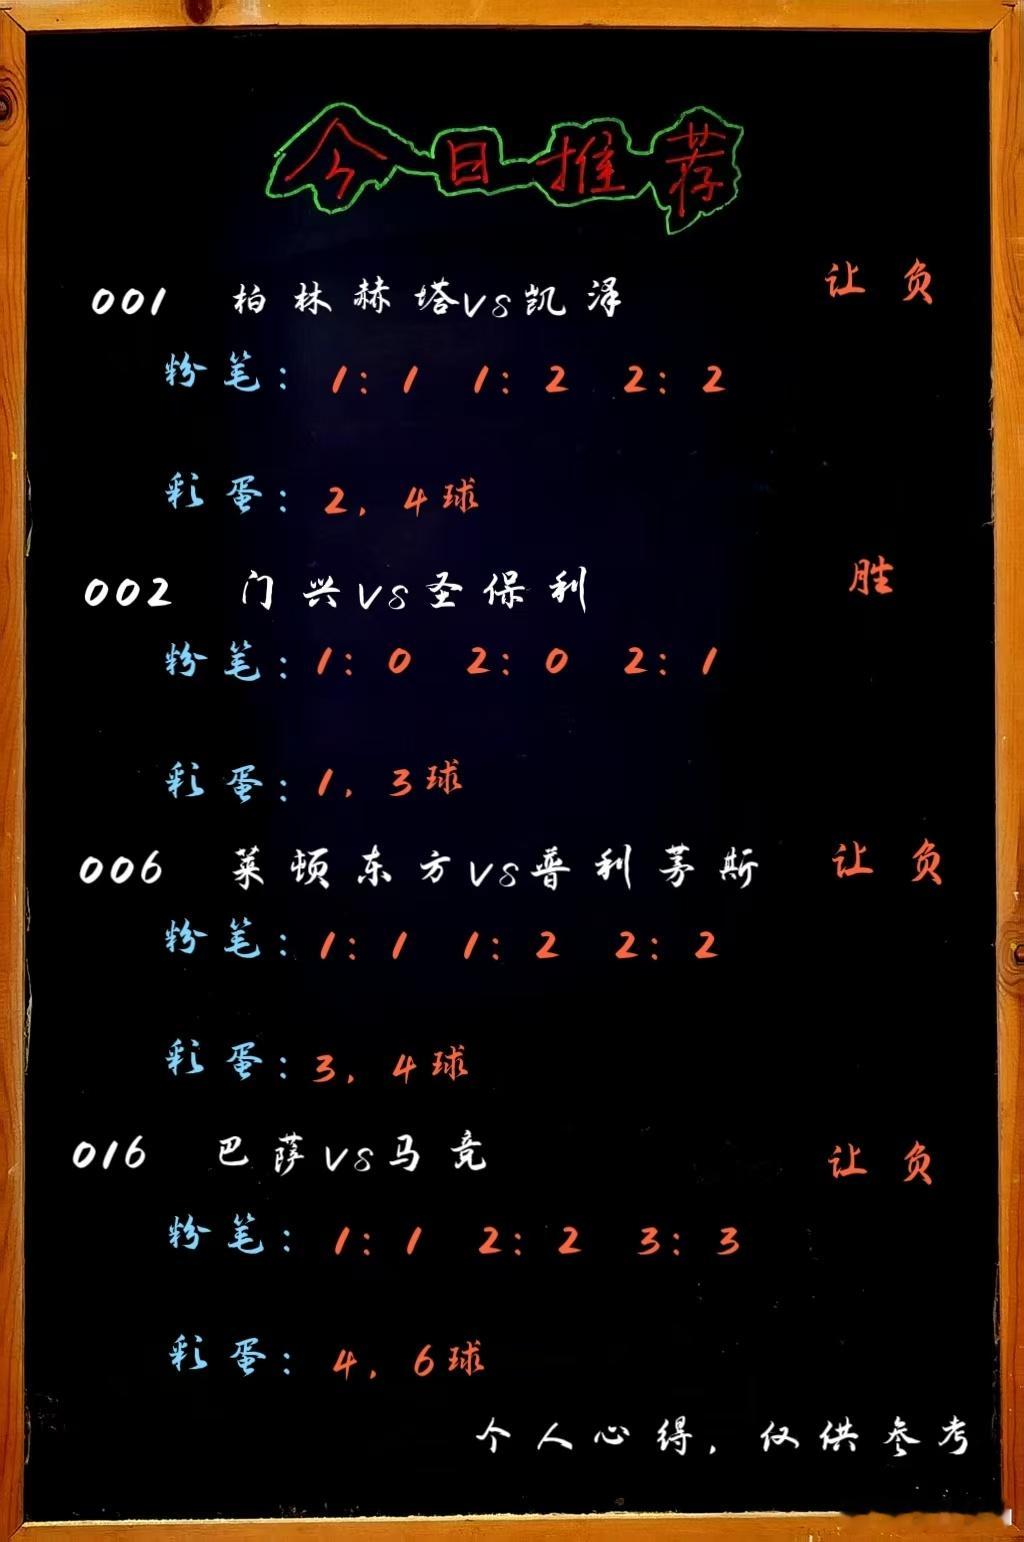 今日推荐
001 柏林赫塔vs凯泽 让负
粉笔：1：1 1：2 2：2
彩蛋：2，4球
002 门兴vs圣保利 胜
粉笔：1：0 2：0 2：1
彩蛋：1，3球
006 莱顿东方vs普利茅斯 让负
粉笔：1：1 1：2 2：2
彩蛋：3，4球
016 巴萨vs马竞 让负
粉笔：1：1 2：2 3：3
彩蛋：4，6球
个人心得，仅供参考